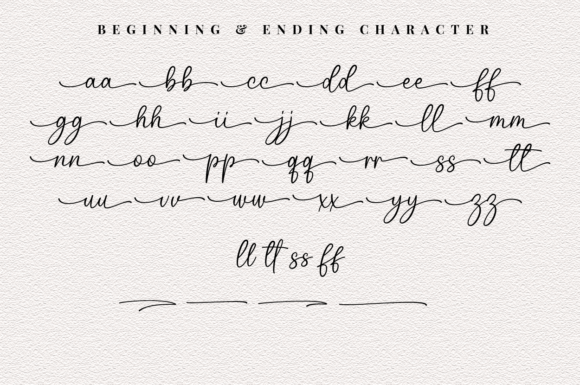 BEGINNING & ENDING CHARACTER
aa bb cc dd ee ff
gg hh ii jj kk ll mm
nn oo pp qq rr ss tt
uu vv ww xx yy zz
ll tt ss ff